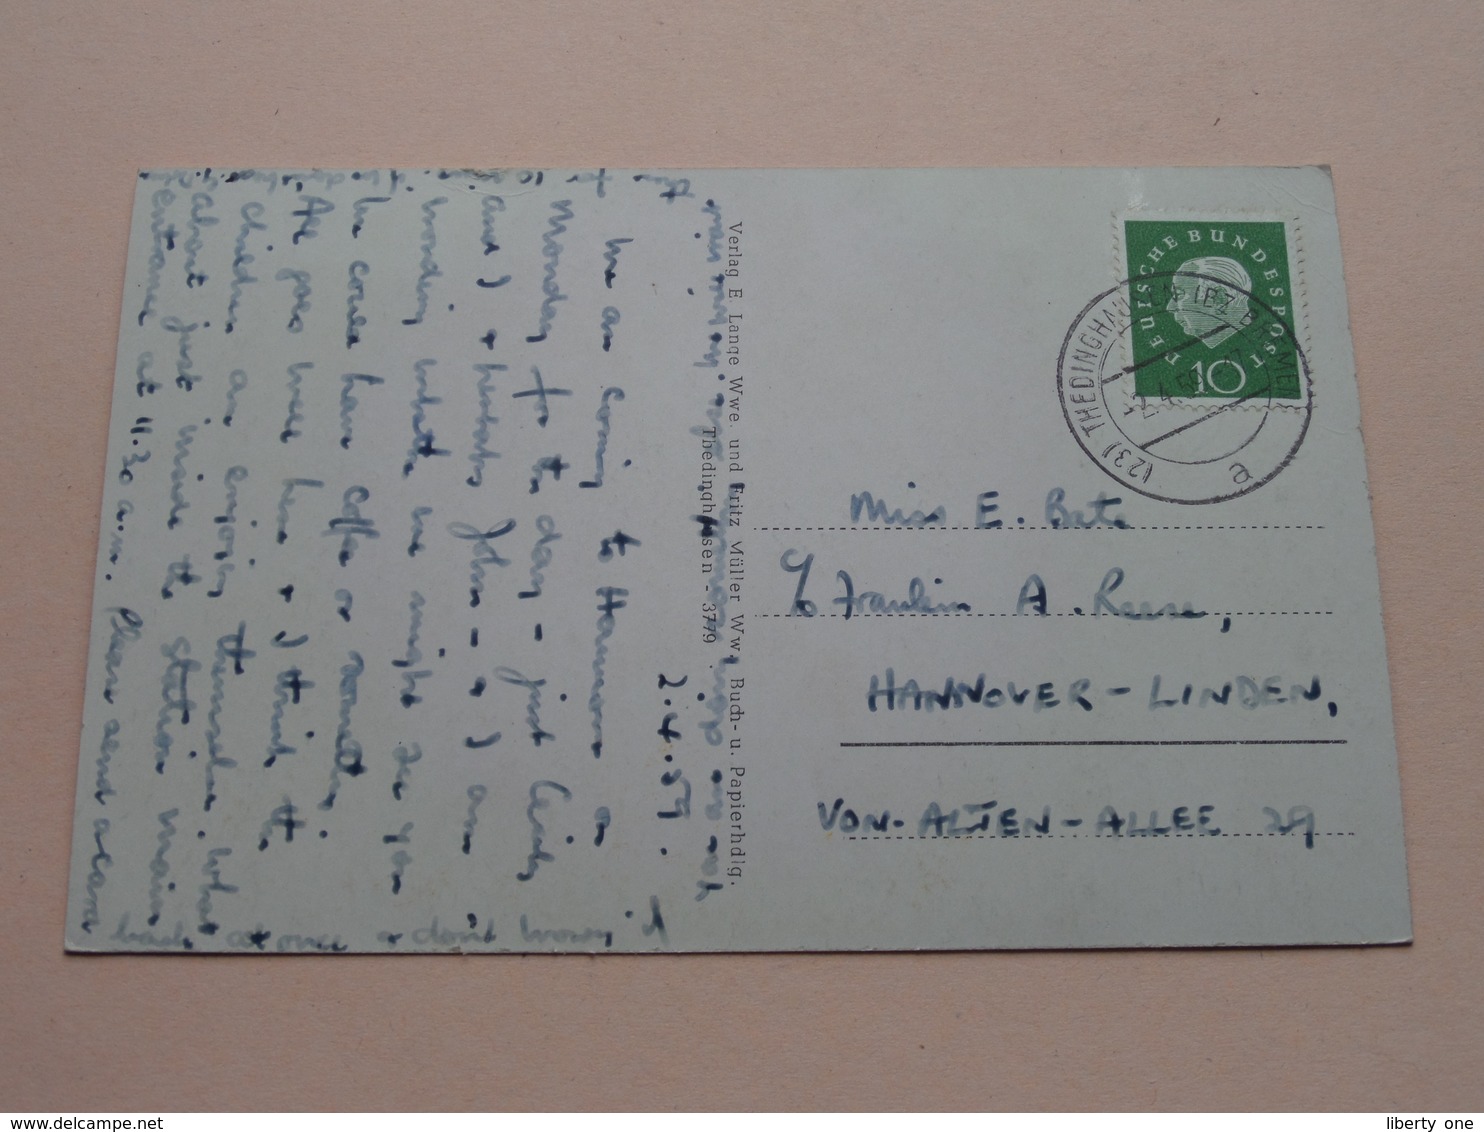 2.4.59.
We are coming to Hannover on
Monday for the day – just Cindy
and I + perhaps John – + I am
wondering whether we might see you.
We could have coffee or something.
All goes well here + I think the
children are enjoying themselves. What
about just inside the station main
entrance at 11.30 a.m. Please send a card
back at once + don't worry if
you
Verlag E. Lange Wwe. und Fritz Müller Ww., Buch- u. Papierhdlg.
Thedinghausen - 3779
DEUTSCHE BUNDESPOST
10
(23) THEDINGHAUSEN BZ BREMEN
2.4.59
a
Miss E. Bate
c/o Fraulein A. Reese,
HANNOVER-LINDEN,
VON-ALTEN-ALLEE 29
liberty one